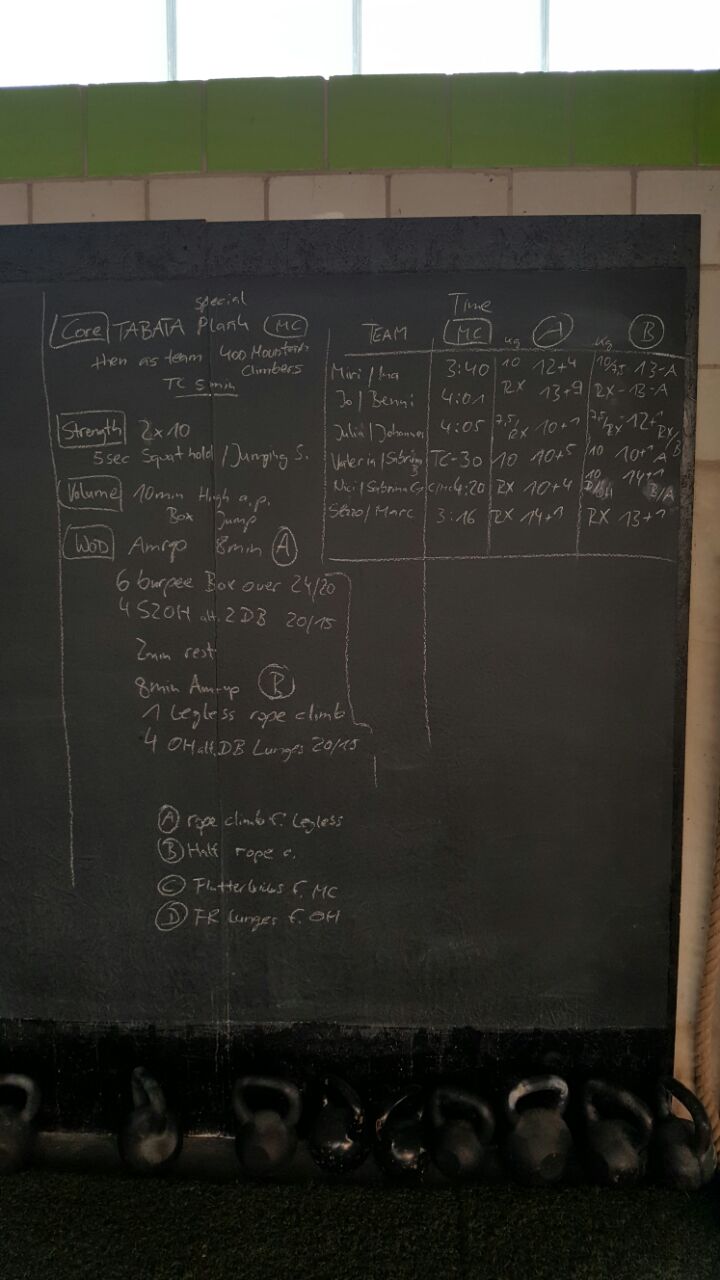 special
Core TABATA Plank MC
then as team 400 Mountain
Climbers
TC 5 min
Strength 2x10
5sec Squat hold / Jumping S.
Volume 10min High a.p.
Box Jump
WOD Amrap 8min A
6 burpee Box over 24/20
4 S2OH alt. 2DB 20/15
2min rest
8min Amrap B
1 Legless rope climb
4 OH alt. DB Lunges 20/15
A rope climb f. Legless
B Half rope c.
C Flutterkicks f. MC
D FR Lunges f. OH
Time
TEAM MC kg A kg B
Miri / Ina 3:40 10 12+4 10/7,5 13-A
Jo / Benni 4:01 RX 13+9 RX-13-A
Julia / Johannes 4:05 7,5/RX 10+1 7,5/RX 12+1 RX/B
Valeria / Sabrina B TC-30 10 10+5 10 10+1 A
Nici / Sabrina G 4:20 RX 10+4 10 14+1 B/A
Marc 3:16 RX 14+1 RX 13+1